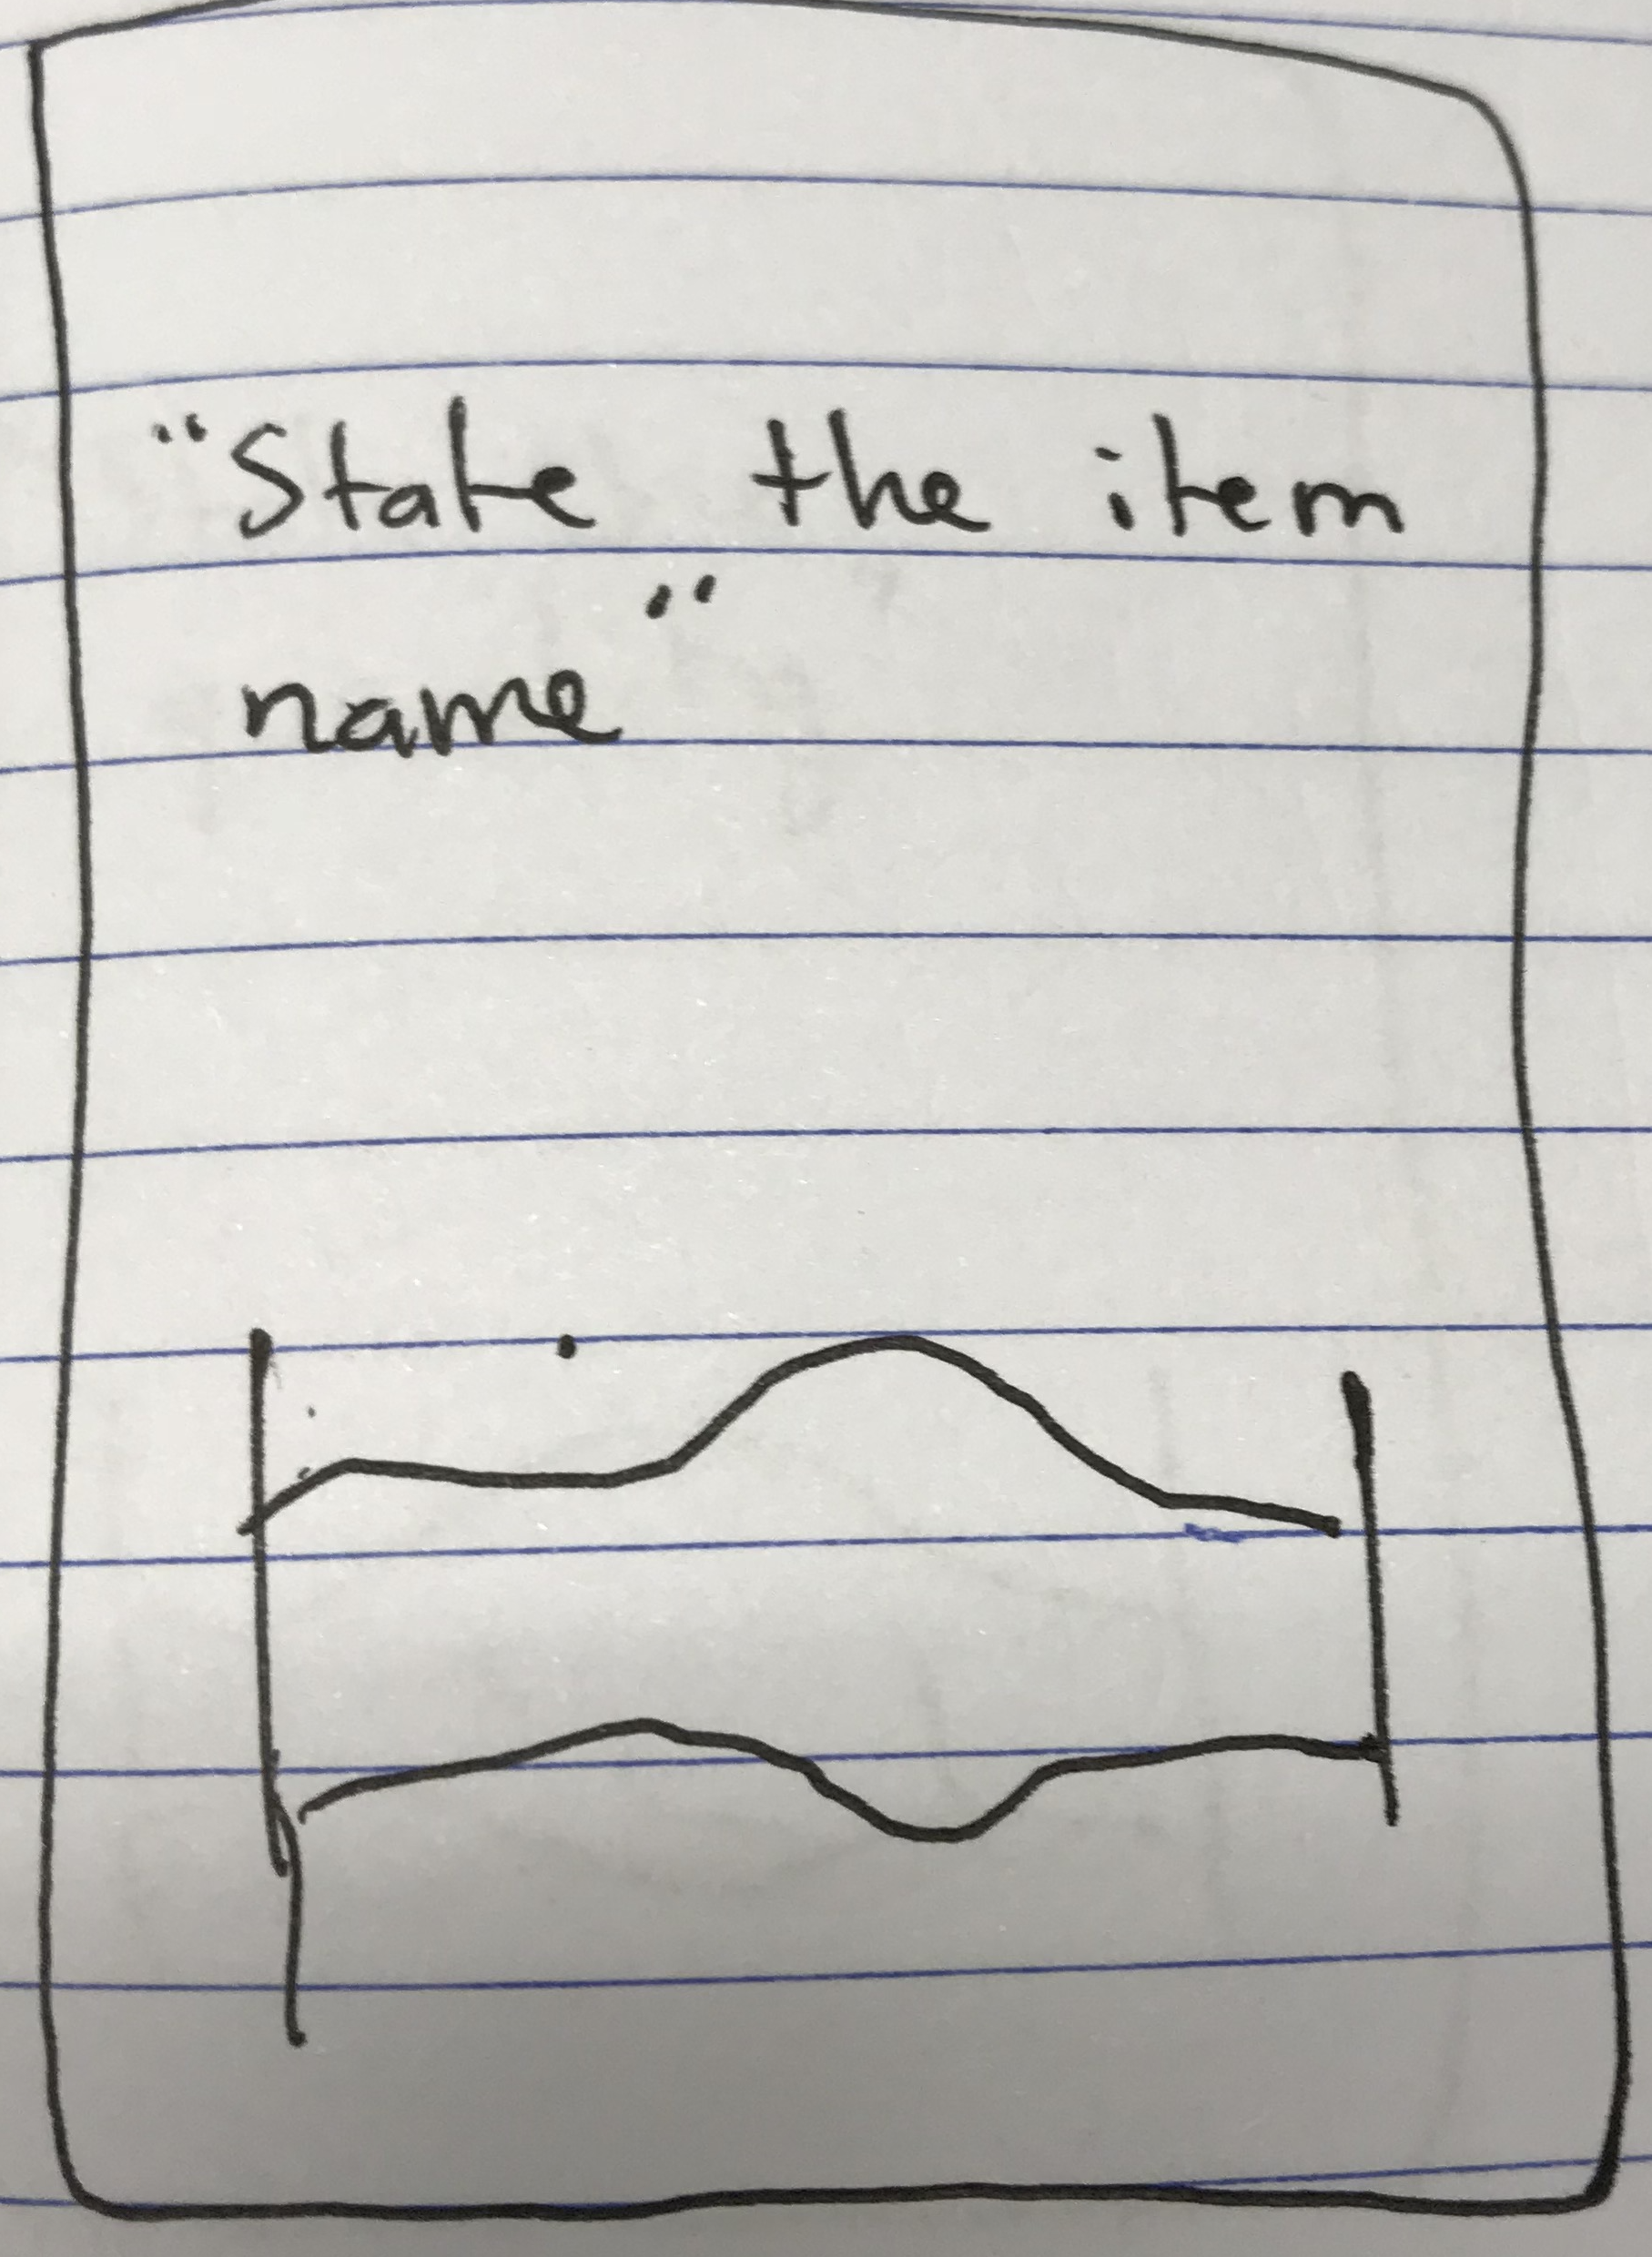 "State the item
name"